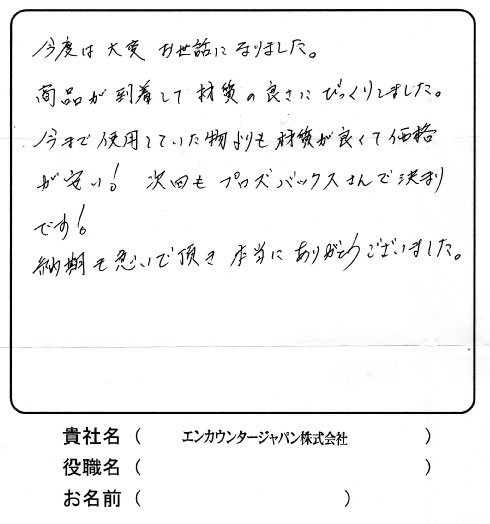 今度は大変お世話になりました。
商品が到着して材質の良さにびっくりしました。
今まで使用していた物よりも材質が良くて価格
が安い! 次回もプロズバックスさんで決まり
です!
納期も急いで頂き本当にありがとうございました。
貴社名 ( エンカウンタージャパン株式会社 )
役職名 ( )
お名前 ( )